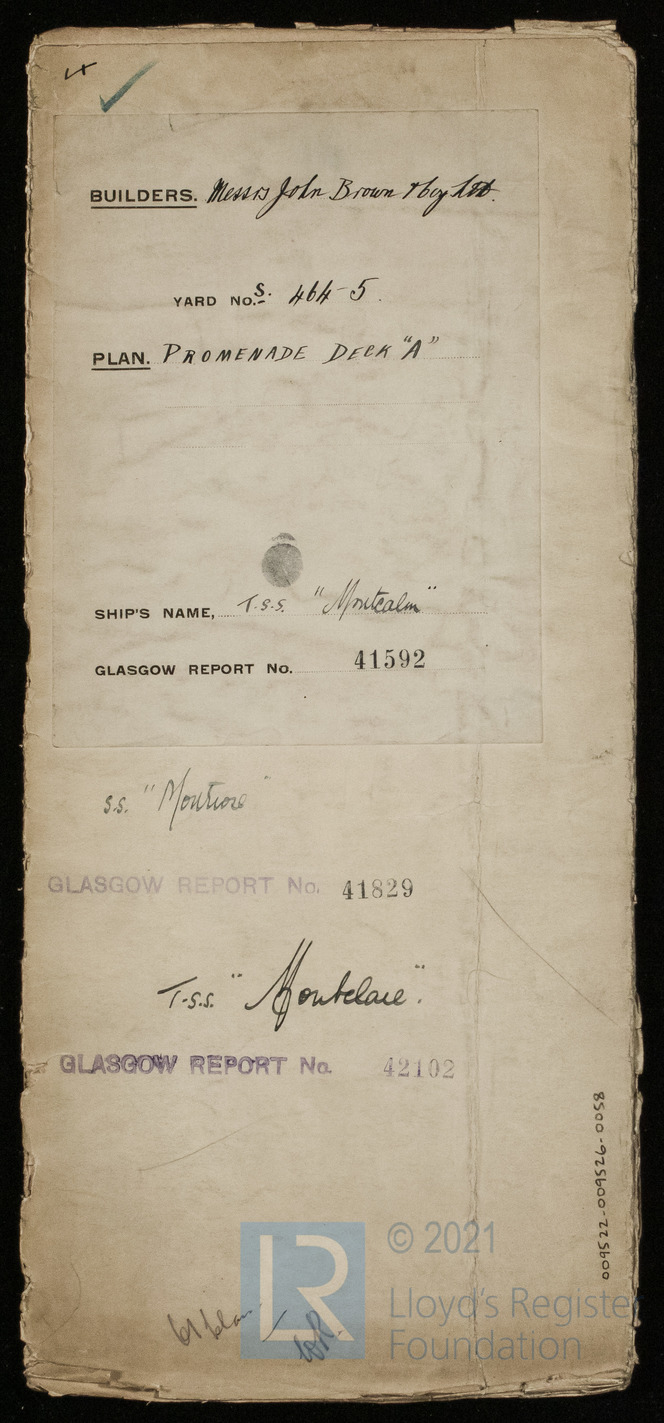 BUILDERS. Messrs John Brown & Coy Ltd.
YARD No.S. 464-5.
PLAN. PROMENADE DECK "A"
SHIP'S NAME, T.S.S. "Montcalm"
GLASGOW REPORT No. 41592
S.S. "Montrose"
GLASGOW REPORT No. 41829
T.S.S. "Montclare".
GLASGOW REPORT No. 42102
009522-009526-0058
LR
© 2021
Lloyd's Register
Foundation